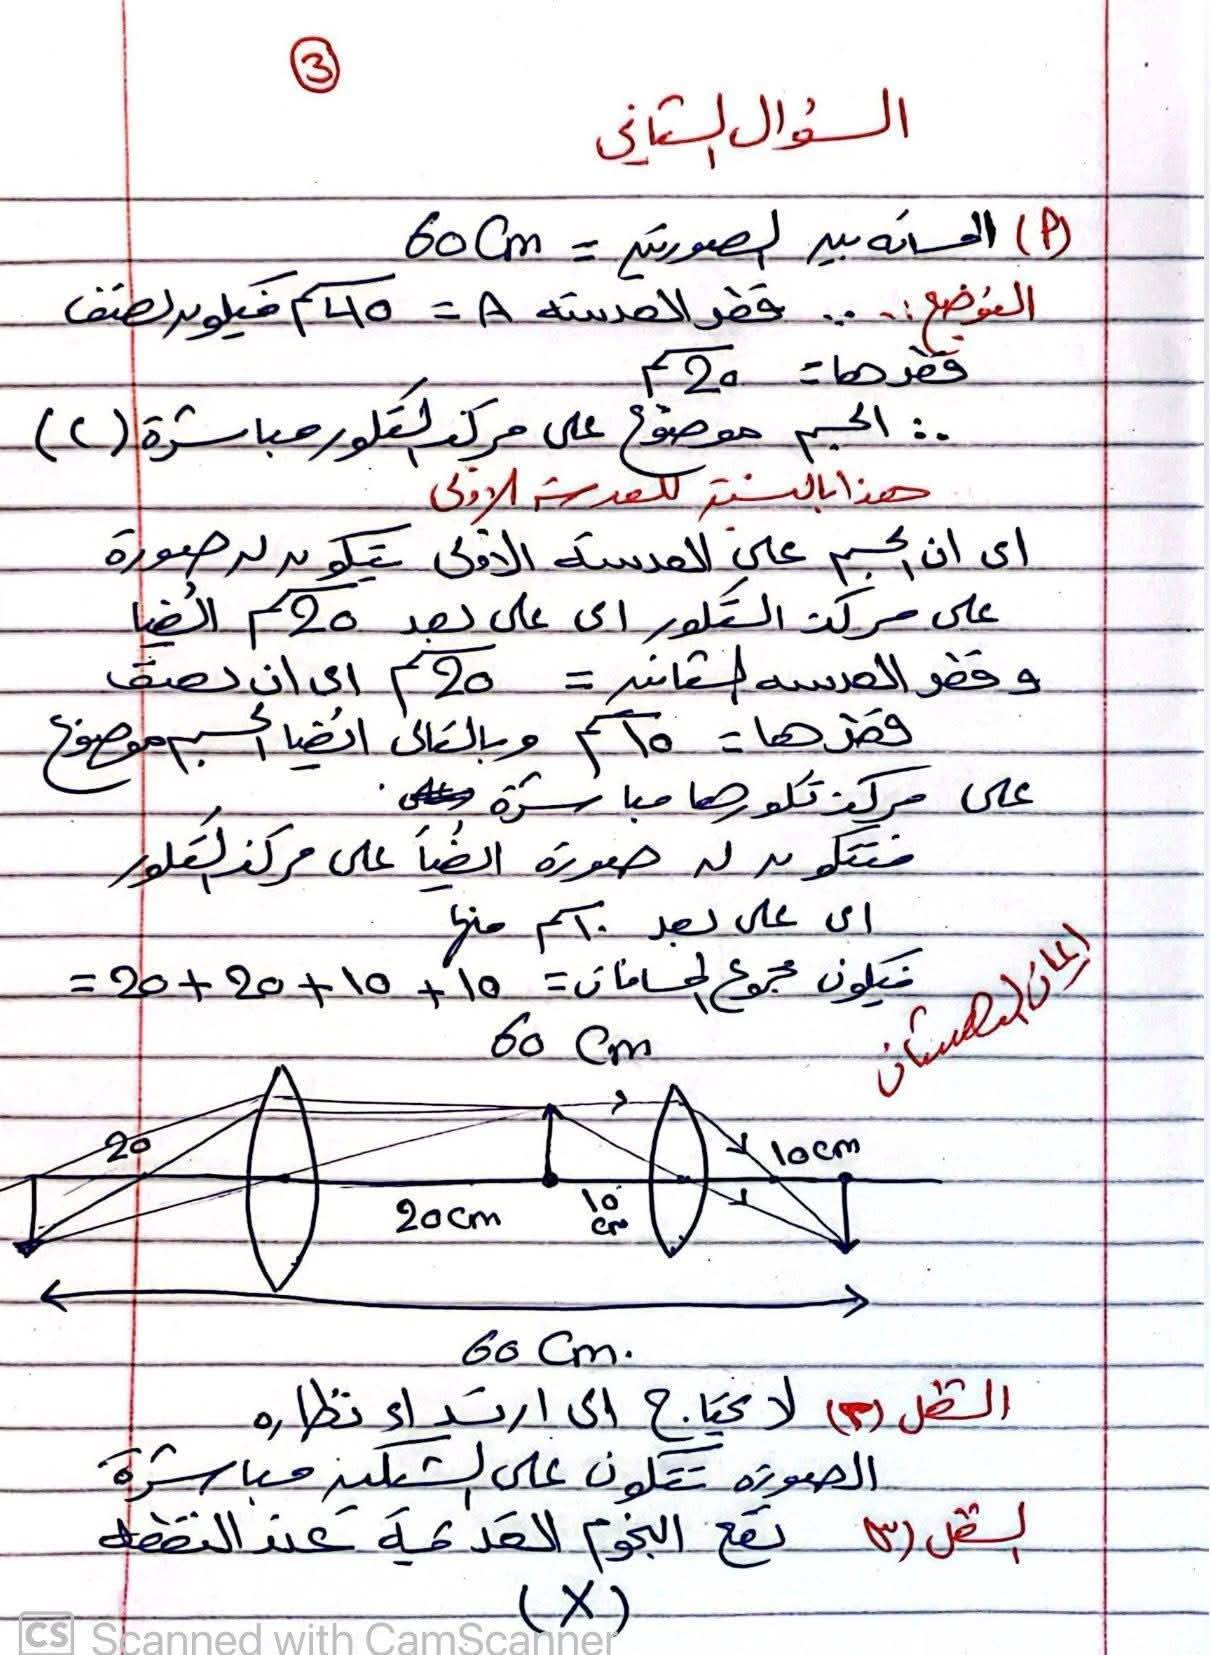 3
السؤال الثاني
(P) المسافة بين الصورتين = 60 Cm
التوضيح:. ∵ قطر العدسة A = 40 سم فيكون نصف
قطرها = 20 سم
∴ الجسم موضوع على مركز التكور مباشرة (C)
هذا بالنسبة للعدسة الأولى
اى ان الجسم على العدسة الأولى يتكون له صورة
على مركز التكور اى على بعد 20 سم ايضا
وقطر العدسة الثانية = 20 سم اى ان نصف
قطرها = 10 سم وبالتالى ايضا الجسم موضوع
على مركز تكورها مباشرة
فتتكون له صورة ايضاً على مركز التكور
اى على بعد ١٠ سم منها
فيكون مجموع المسافات = 10 + 10 + 20 + 20 =
60 Cm
20
20cm
10 cm
10cm
60 Cm.
الشكل (٢) لا يحتاج الى ارتداء نظاره
الصورة تتكون على الشبكية مباشرة
الشكل (٣) تقع النجوم القدمية عند النقطه
(X)
CS Scanned with CamScanner